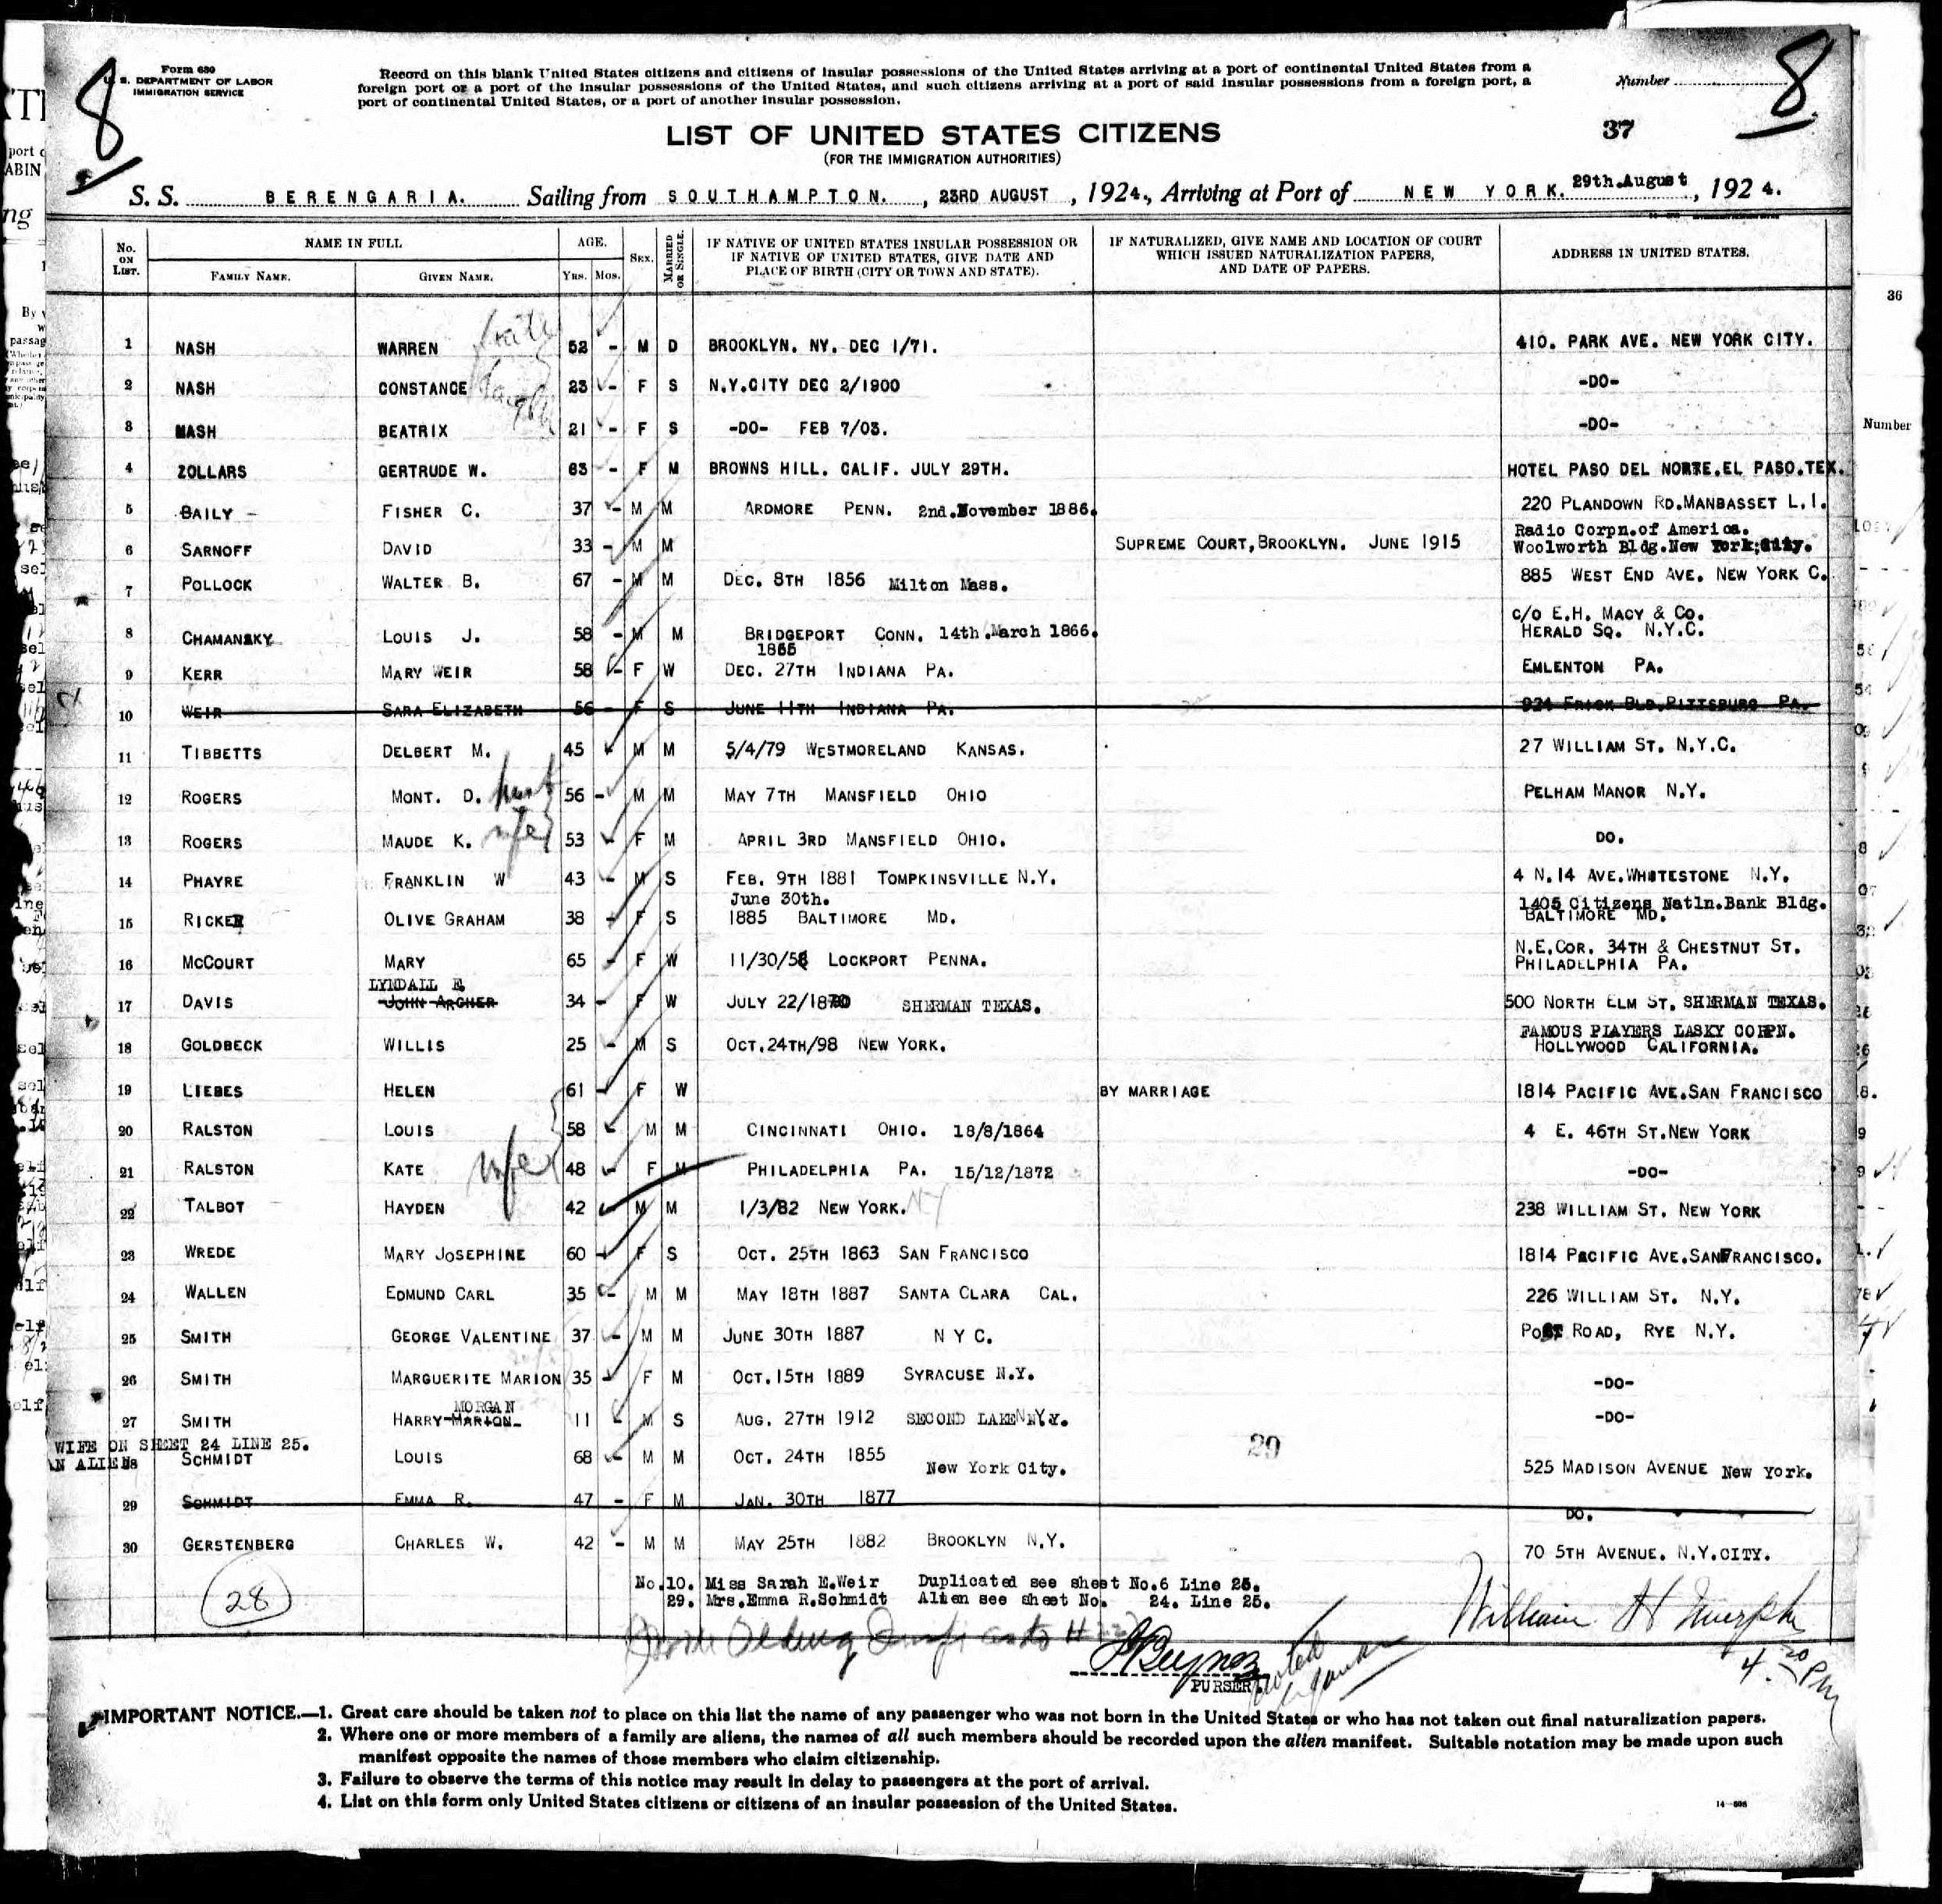 Form 630
U. S. DEPARTMENT OF LABOR
IMMIGRATION SERVICE
8
Record on this blank United States citizens and citizens of insular possessions of the United States arriving at a port of continental United States from a
foreign port or a port of the insular possessions of the United States, and such citizens arriving at a port of said insular possessions from a foreign port, a
port of continental United States, or a port of another insular possession.
Number
8
LIST OF UNITED STATES CITIZENS
37
(FOR THE IMMIGRATION AUTHORITIES)
S. S. BERENGARIA. Sailing from SOUTHAMPTON. , 23RD AUGUST , 1924., Arriving at Port of NEW YORK. 29th.August , 1924.
No. ON LIST. NAME IN FULL FAMILY NAME. GIVEN NAME. AGE. YRS. MOS. SEX. MARRIED OR SINGLE. IF NATIVE OF UNITED STATES INSULAR POSSESSION OR IF NATIVE OF UNITED STATES, GIVE DATE AND PLACE OF BIRTH (CITY OR TOWN AND STATE). IF NATURALIZED, GIVE NAME AND LOCATION OF COURT WHICH ISSUED NATURALIZATION PAPERS, AND DATE OF PAPERS. ADDRESS IN UNITED STATES.
36
1 NASH WARREN 52 - M D BROOKLYN. NY. DEC 1/71. 410. PARK AVE. NEW YORK CITY.
2 NASH CONSTANCE 23 - F S N.Y.CITY DEC 2/1900 -DO-
3 NASH BEATRIX 21 - F S -DO- FEB 7/03. -DO-
Number
4 ZOLLARS GERTRUDE W. 63 - F M BROWNS HILL. CALIF. JULY 29TH. HOTEL PASO DEL NORTE.EL PASO.TEX.
5 BAILY - FISHER C. 37 - M M ARDMORE PENN. 2nd.November 1886. 220 PLANDOWN RD.MANBASSET L.I.
6 SARNOFF DAVID 33 - M M SUPREME COURT,BROOKLYN. JUNE 1915 Radio Corpn.of America.
Woolworth Bldg.New York City.
7 POLLOCK WALTER B. 67 - M M DEC. 8TH 1856 Milton Mass. 885 WEST END AVE. NEW YORK C.
8 CHAMANSKY LOUIS J. 58 - M M BRIDGEPORT CONN. 14th.March 1866. C/O E.H. MACY & CO.
HERALD SQ. N.Y.C.
1865
9 KERR MARY WEIR 58 - F W DEC. 27TH INDIANA PA. EMLENTON PA.
10 WEIR SARA ELIZABETH 56 - F S JUNE 11TH INDIANA PA. 924 FRICK BLD.PITTSBURG PA.
11 TIBBETTS DELBERT M. 45 M M 5/4/79 WESTMORELAND KANSAS. 27 WILLIAM ST. N.Y.C.
12 ROGERS MONT. D. 56 - M M MAY 7TH MANSFIELD OHIO PELHAM MANOR N.Y.
13 ROGERS MAUDE K. wife 53 - F M APRIL 3RD MANSFIELD OHIO. DO.
14 PHAYRE FRANKLIN W 43 - M S FEB. 9TH 1881 TOMPKINSVILLE N.Y. 4 N.14 AVE.WHITESTONE N.Y.
June 30th.
15 RICKER OLIVE GRAHAM 38 - F S 1885 BALTIMORE MD. 1405 Citizens Natln.Bank Bldg.
BALTIMORE MD.
16 MCCOURT MARY 65 - F W 11/30/58 LOCKPORT PENNA. N.E.COR. 34TH & CHESTNUT ST.
PHILADELPHIA PA.
LYNDALL E.
17 DAVIS JOHN ARCHER 34 - F W JULY 22/1870 SHERMAN TEXAS. 500 NORTH ELM ST. SHERMAN TEXAS.
18 GOLDBECK WILLIS 25 - M S OCT.24TH/98 NEW YORK. FAMOUS PLAYERS LASKY CORPN.
HOLLYWOOD CALIFORNIA.
19 LIEBES HELEN 61 - F W BY MARRIAGE 1814 PACIFIC AVE.SAN FRANCISCO
20 RALSTON LOUIS 58 - M M CINCINNATI OHIO. 18/8/1864 4 E. 46TH ST.NEW YORK
21 RALSTON KATE wife 48 - F M PHILADELPHIA PA. 15/12/1872 -DO-
22 TALBOT HAYDEN 42 - M M 1/3/82 NEW YORK. NY 238 WILLIAM ST. NEW YORK
23 WREDE MARY JOSEPHINE 60 - F S OCT. 25TH 1863 SAN FRANCISCO 1814 PACIFIC AVE.SANFRANCISCO.
24 WALLEN EDMUND CARL 35 - M M MAY 18TH 1887 SANTA CLARA CAL. 226 WILLIAM ST. N.Y.
25 SMITH GEORGE VALENTINE 37 - M M JUNE 30TH 1887 N Y C. POST ROAD, RYE N.Y.
26 SMITH MARGUERITE MARION 35 - F M OCT.15TH 1889 SYRACUSE N.Y. -DO-
MORGAN
27 SMITH HARRY MARION 11 - M S AUG. 27TH 1912 SECOND LAKE N.Y. -DO-
29
WIFE ON SHEET 24 LINE 25.
AN ALIEN
28 SCHMIDT LOUIS 68 - M M OCT. 24TH 1855 New York City. 525 MADISON AVENUE New York.
29 SCHMIDT EMMA R. 47 - F M JAN. 30TH 1877 DO.
30 GERSTENBERG CHARLES W. 42 - M M MAY 25TH 1882 BROOKLYN N.Y. 70 5TH AVENUE. N.Y.CITY.
28
No.10. Miss Sarah E.Weir Duplicated see sheet No.6 Line 25.
29. Mrs.Emma R.Schmidt Alien see sheet No. 24. Line 25.
William H Murphy
4.20 PM
PURSER.
IMPORTANT NOTICE.—1. Great care should be taken not to place on this list the name of any passenger who was not born in the United States or who has not taken out final naturalization papers.
2. Where one or more members of a family are aliens, the names of all such members should be recorded upon the alien manifest. Suitable notation may be made upon such
manifest opposite the names of those members who claim citizenship.
3. Failure to observe the terms of this notice may result in delay to passengers at the port of arrival.
4. List on this form only United States citizens or citizens of an insular possession of the United States.